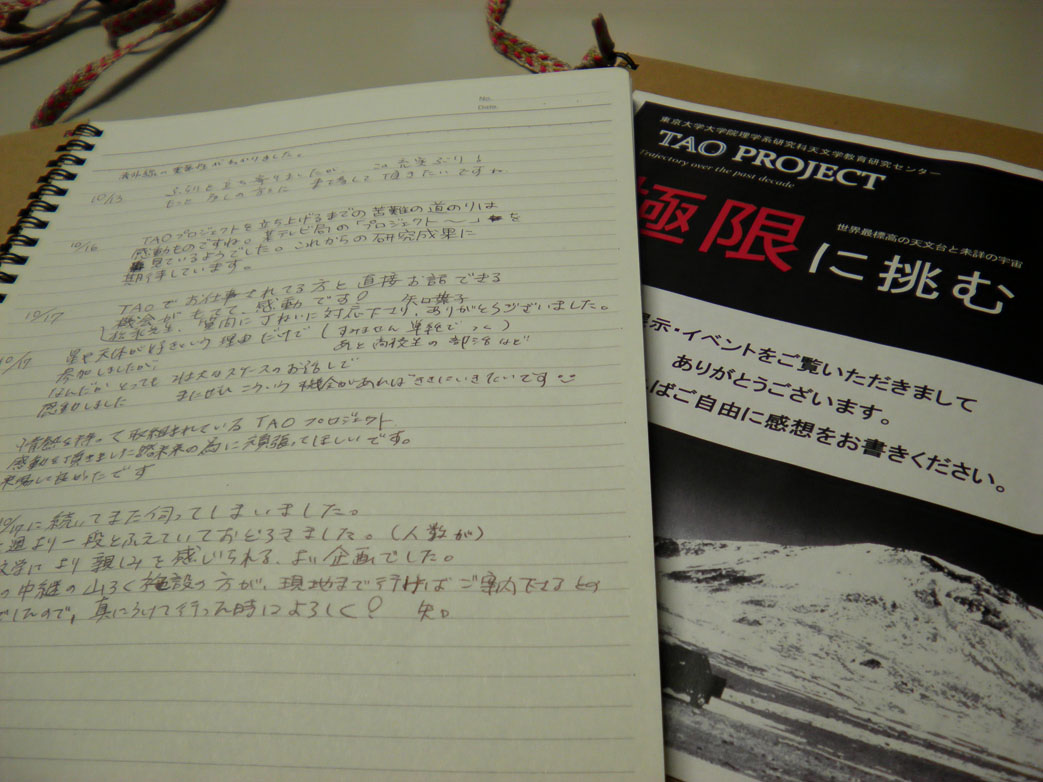 No.
Date
赤外線の重要性がわかりました。
10/13
ふらりと立ち寄りましたが
もっと多しの方々に
頂きたいですね
10/16
TAOプロジェクトを立ち上げるまでの苦難の道のりは
感動ものですね。某テレビ局の「プロジェクト〜」を
見ているようでした。これからの研究成果に
期待しています。
10/17
TAOでお仕事されてる方と直接お話できる
機会がもてて、感動です!
松本先生、質問にていねいに対応下さり、ありがとうございました。
10/17
星や天体が好きという理由だけで(すみません単純で
参加しましたが、
あと高校生の部活など
なんだかとっても壮大なスケールのお話しで
感動しました
またぜひこういう機会があればききにいきたいです
情熱を持って取組まれているTAOプロジェクト
感動を頂きました
未来の為に頑張ってほしいです。
来場して良かったです
10/17に続いてまた伺ってしまいました。
週より一段とふえていておどろきました。(人数が)
文学により親しみを感じられる、よい企画でした。
の中継の山ろく施設の方が、現地まで行けばご案内下さるとの
でしたので、真にうけて行った時はよろしく!
東京大学大学院理学系研究科天文学教育研究センター
TAO PROJECT
Trajectory over the past decade
極限に挑む
世界最標高の天文台と未詳の宇宙
展示・イベントをご覧いただきまして
ありがとうございます。
ばご自由に感想をお書きください。